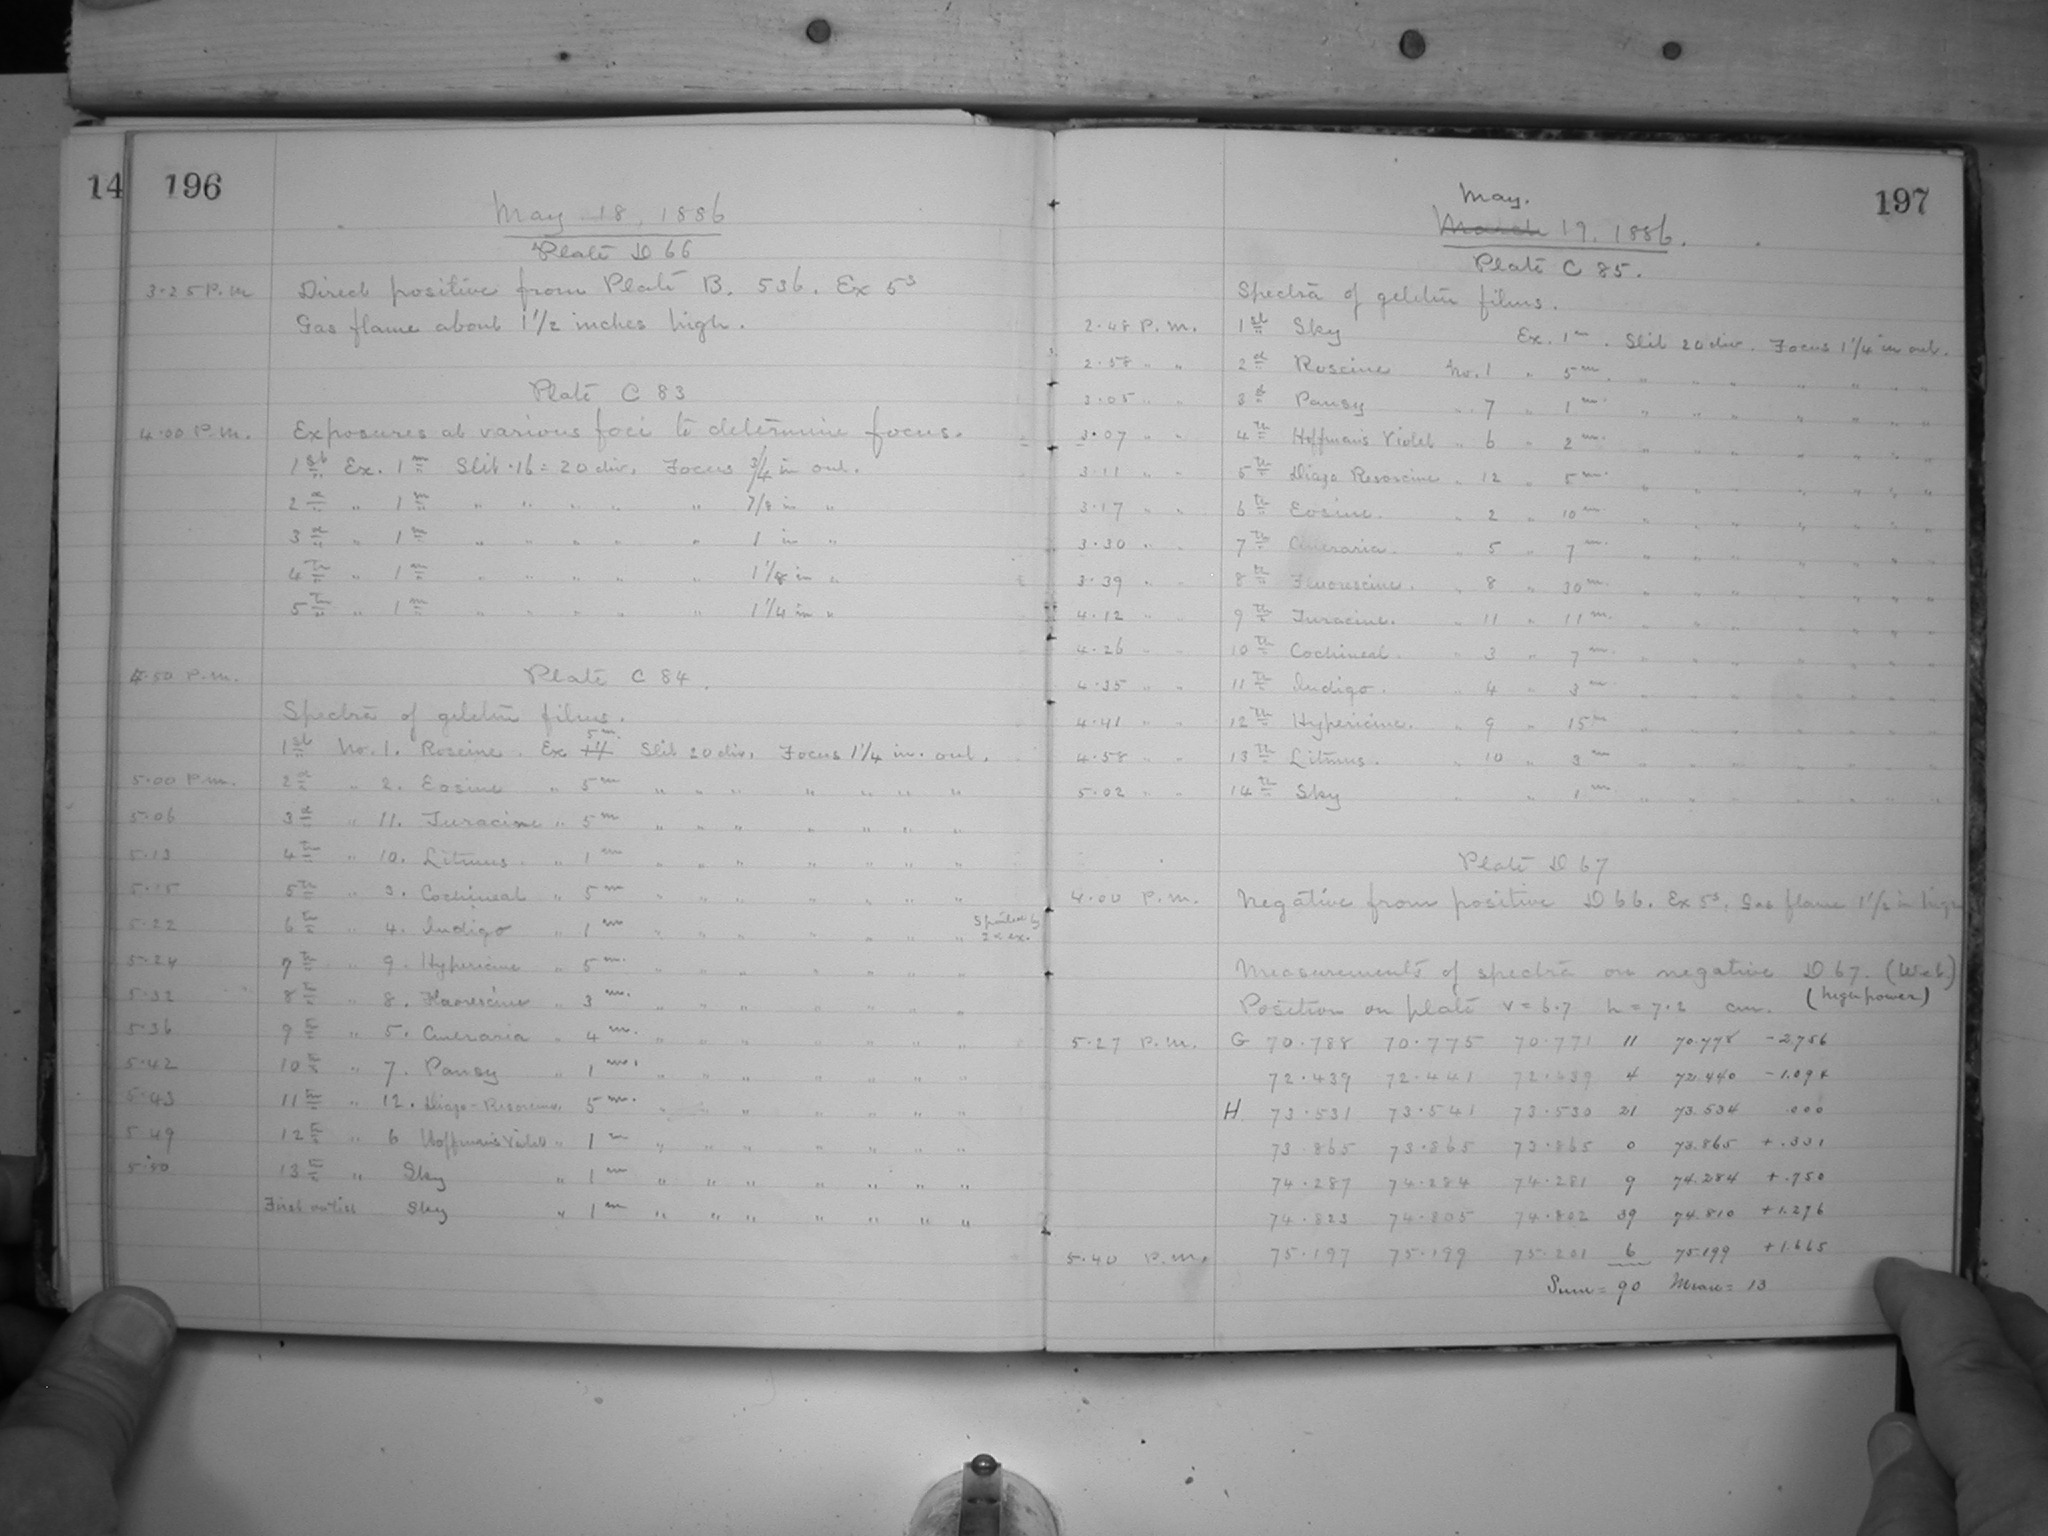 14 196
May 18, 1886
Plate D 66
3.25 P.M Direct positive from Plate B. 536. Ex 5s
Gas flame about 1 1/2 inches high.
Plate C 83
4.00 P.M. Exposures at various foci to determine focus.
1st Ex. 1m Slit .16 = 20 div. Focus 3/4 in out.
2d " 1m " " " " " 7/8 in "
3d " 1m " " " " " 1 in "
4th " 1m " " " " " 1 1/8 in "
5th " 1m " " " " " 1 1/4 in "
4.50 P.M. Plate C 84.
Spectra of gelatin films.
1st No. 1. Roseine. Ex 5m. Slit 20 div. Focus 1 1/4 in. out.
5.00 P.M. 2d " 2. Eosine " 5m " " " " " " "
5.06 3d " 11. Turacine " 5m " " " " " " "
5.13 4th " 10. Litmus. " 1m " " " " " " "
5.15 5th " 3. Cochineal " 5m " " " " " " "
5.22 6th " 4. Indigo " 1m " " " " " " " Spoiled by 2d ex.
5.24 7th " 9. Hypericine " 5m. " " " " " " "
5.32 8th " 8. Fluorescine " 3m. " " " " " " "
5.36 9th " 5. Cineraria " 4m. " " " " " " "
5.42 10th " 7. Pansy " 1m. " " " " " " "
5.43 11th " 12. Diazo-Resorcine. 5m. " " " " " " "
5.49 12th " 6 Hoffman's Violet " 1m " " " " " " "
5.50 13th " Sky " 1m " " " " " " "
First outlist Sky " 1m " " " " " " "
197
May.
March 19, 1886.
Plate C 85.
Spectra of gelatin films.
2.48 P.M. 1st Sky Ex. 1m. Slit 20 div. Focus 1 1/4 in out.
2.58 " " 2d Roseine No. 1 " 5m. " " " " " " "
3.05 " " 3d Pansy " 7 " 1m. " " " " " " "
3.07 " " 4th Hoffman's Violet " 6 " 2m. " " " " " " "
3.11 " " 5th Diazo Resorcine " 12 " 5m. " " " " " " "
3.17 " " 6th Eosine. " 2 " 10m. " " " " " " "
3.30 " " 7th Cineraria. " 5 " 7m. " " " " " " "
3.39 " " 8th Fluorescine. " 8 " 30m. " " " " " " "
4.12 " " 9th Turacine. " 11 " 11m. " " " " " " "
4.26 " " 10th Cochineal. " 3 " 7m. " " " " " " "
4.35 " " 11th Indigo. " 4 " 3m " " " " " " "
4.41 " " 12th Hypericine. " 9 " 15m " " " " " " "
4.58 " " 13th Litmus. " 10 " 3m " " " " " " "
5.02 " " 14th Sky " " 1m " " " " " " "
Plate D 67
4.00 P.M. Negative from positive D 66. Ex 5s. Gas flame 1 1/2 in high
Measurements of spectra on negative D 67. (Web)
Position on plate v = 6.7 h = 7.2 cm. (high power)
5.27 P.M. G 70.788 70.775 70.771 11 70.778 -2.756
72.439 72.441 72.439 4 72.440 -1.094
H. 73.531 73.541 73.530 21 73.534 .000
73.865 73.865 73.865 0 73.865 +.331
74.287 74.284 74.281 9 74.284 +.750
74.823 74.805 74.802 39 74.810 +1.276
5.40 P.M. 75.197 75.199 75.201 6 75.199 +1.665
Sum = 90 Mean = 13